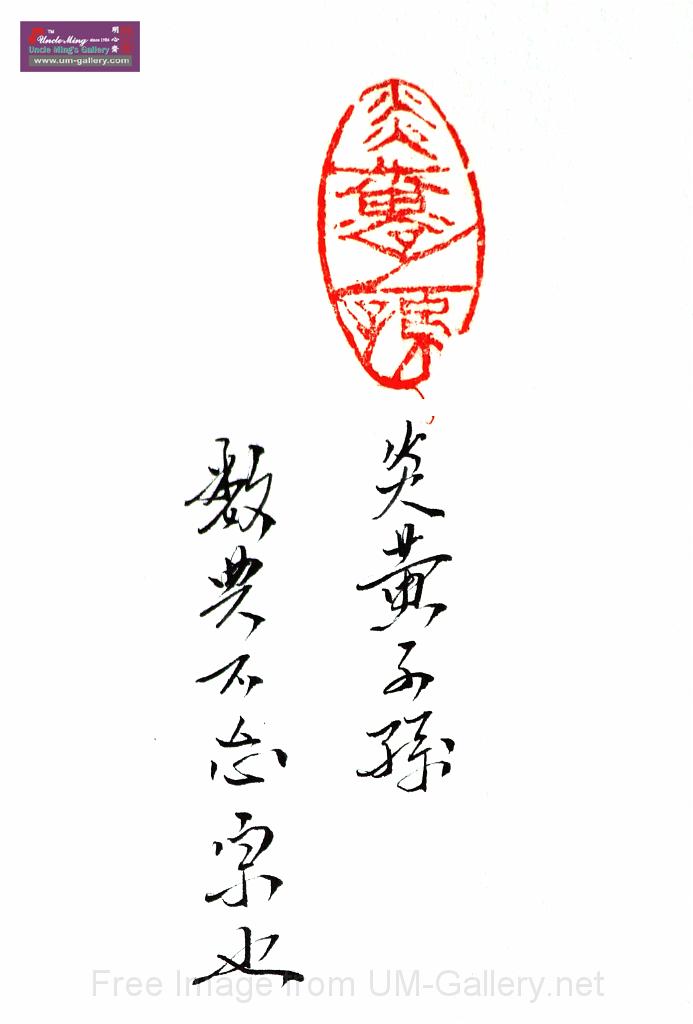 TM
Uncle Ming since 1986
明心齋
Uncle Ming's Gallery
www.um-gallery.com
炎黃子孫
炎黃子孫
數典不忘宗也
Free Image from UM-Gallery.net